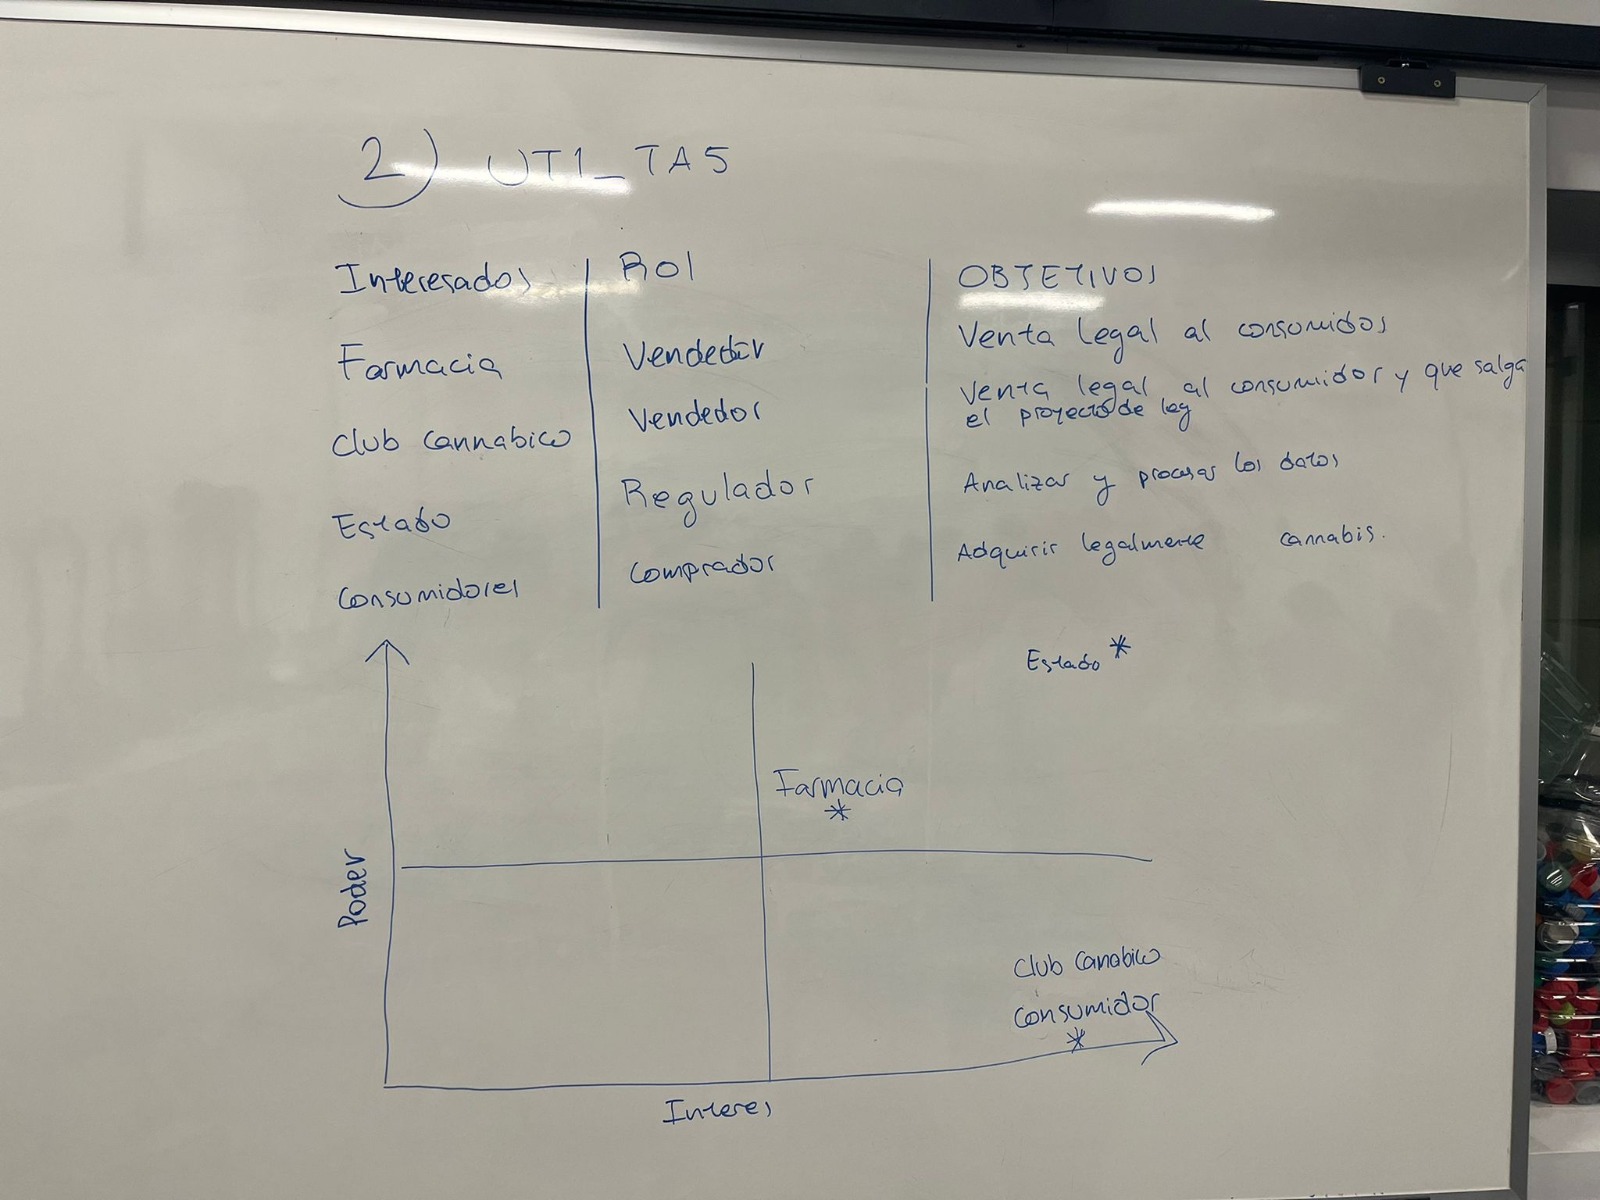 2) UT1_TA5
Interesados Rol OBJETIVOS
Farmacia Vendedor Venta legal al consumidos
Club cannabico Vendedor Venta legal al consumidor y que salga
el proyecto de ley
Estado Regulador Analizar y procesar los datos
Consumidores Comprador Adquirir legalmente cannabis.
Estado *
Farmacia
*
Poder
Club Canabico
Consumidor
*
Interes